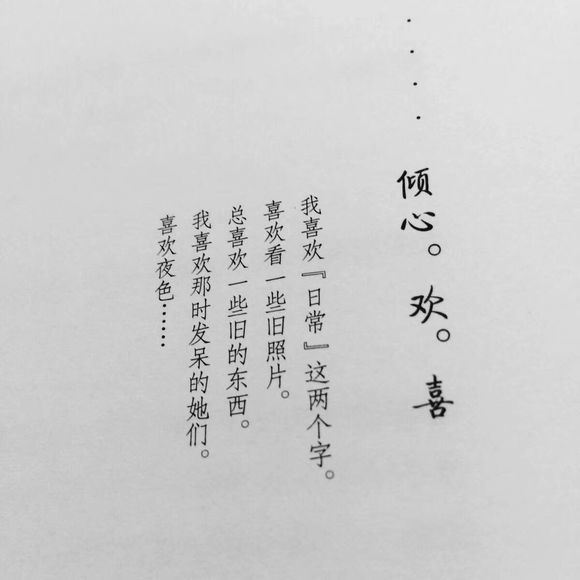 倾心。欢。喜
我喜欢『日常』这两个字。
喜欢看一些旧照片。
总喜欢一些旧的东西。
我喜欢那时发呆的她们。
喜欢夜色……